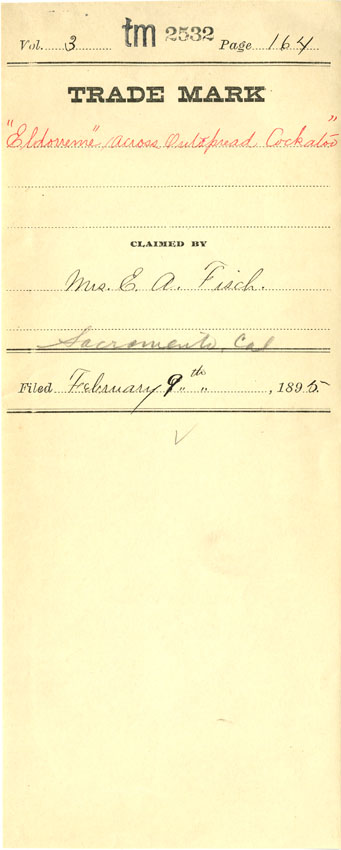 Vol. 3 tm 2532 Page 164
TRADE MARK
"Eldoreme" across Outspread Cockatoo"
CLAIMED BY
Mrs. E. A. Fisch.
Sacramento, Cal
Filed February 9th, 1895